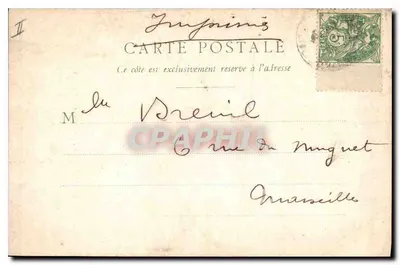 II
Imprimés
CARTE POSTALE
Ce côté est exclusivement réservé à l'adresse
5
M lle Breuil
CPAPHIL
6 rue du Muguet
Marseille